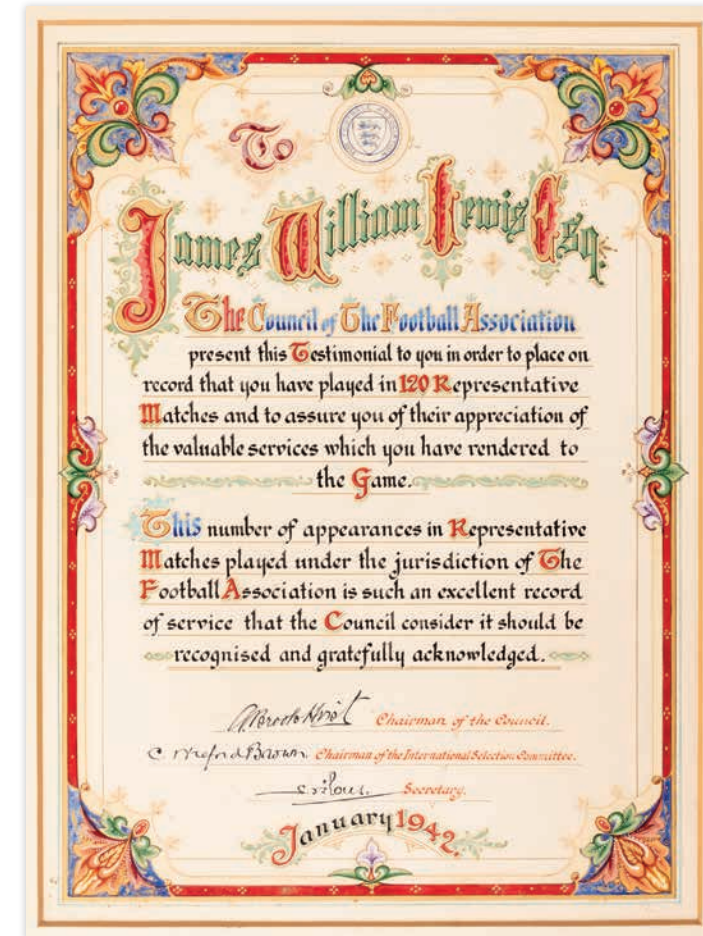 To
James William Lewis Esq.
The Council of The Football Association
present this Testimonial to you in order to place on
record that you have played in 120 Representative
Matches and to assure you of their appreciation of
the valuable services which you have rendered to
the Game.
This number of appearances in Representative
Matches played under the jurisdiction of The
Football Association is such an excellent record
of service that the Council consider it should be
recognised and gratefully acknowledged.
Chairman of the Council.
C. Wreford Brown. Chairman of the International Selection Committee.
Secretary.
January 1942.